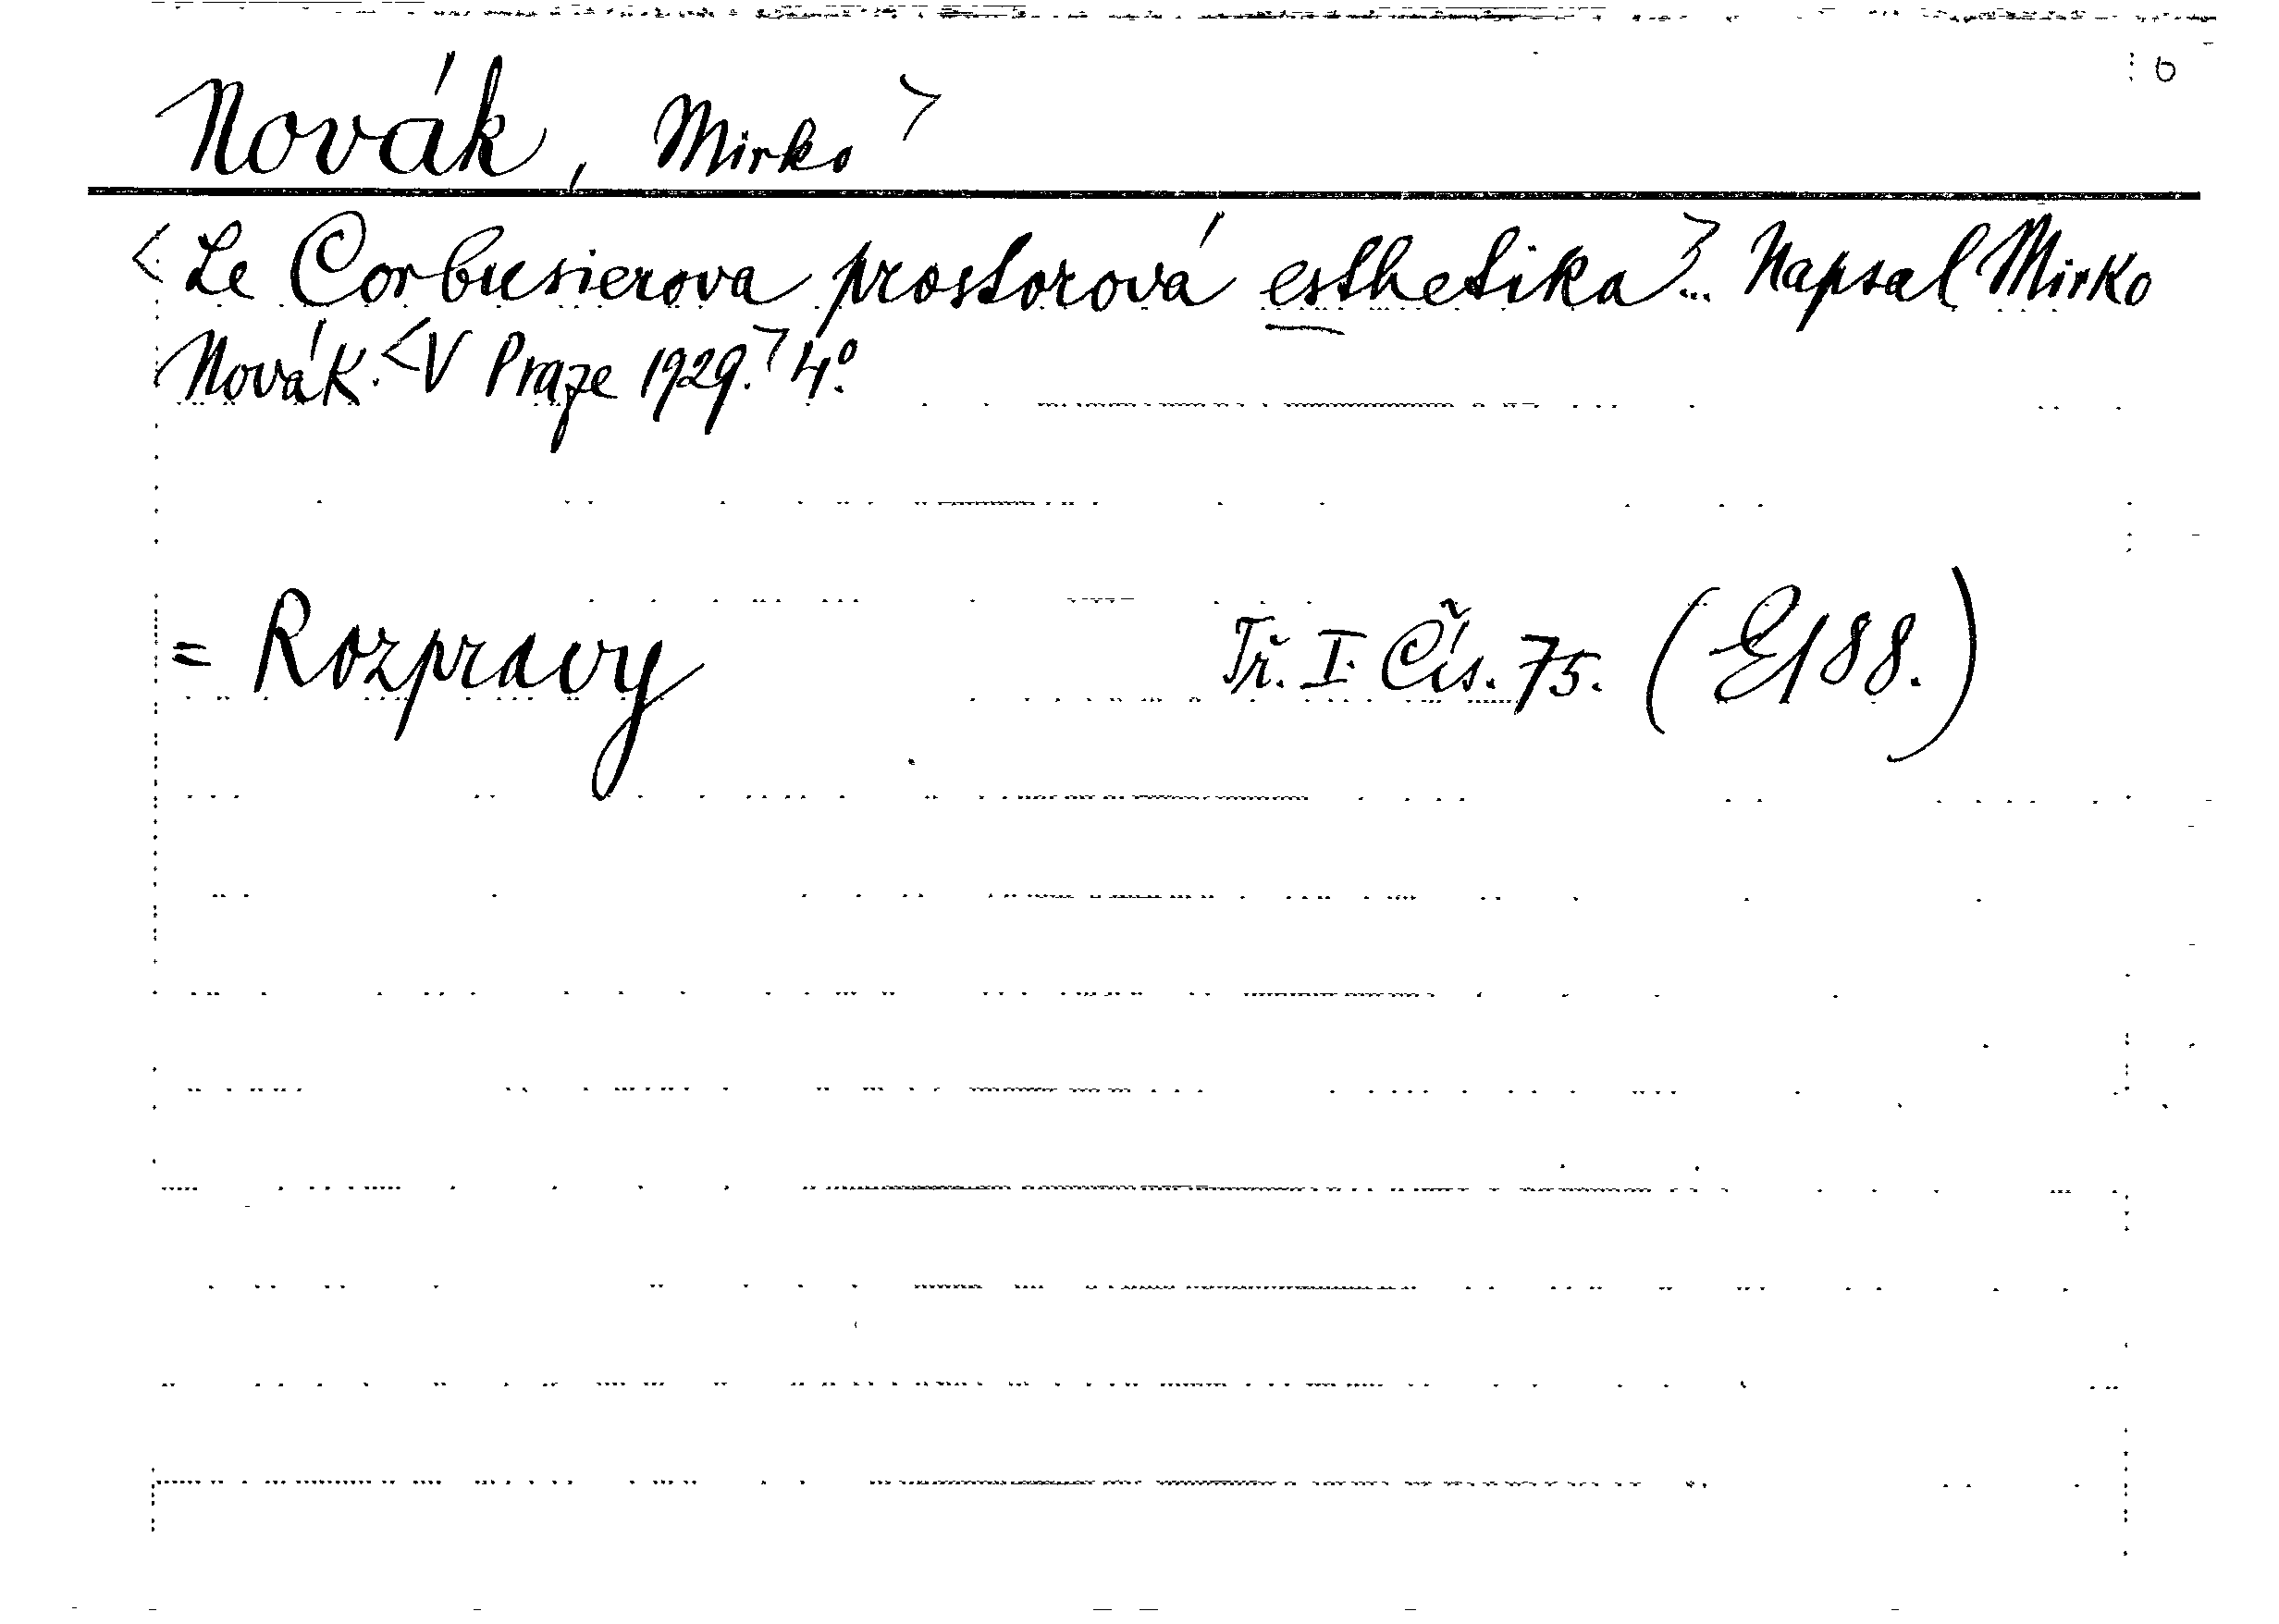 Novák, Mirko >
< Le Corbusierova prostorová esthetika >... Napsal Mirko
Novák. < V Praze 1929. > 4°.
= Rozpravy Tř. I. Čís. 75. (E 188.)